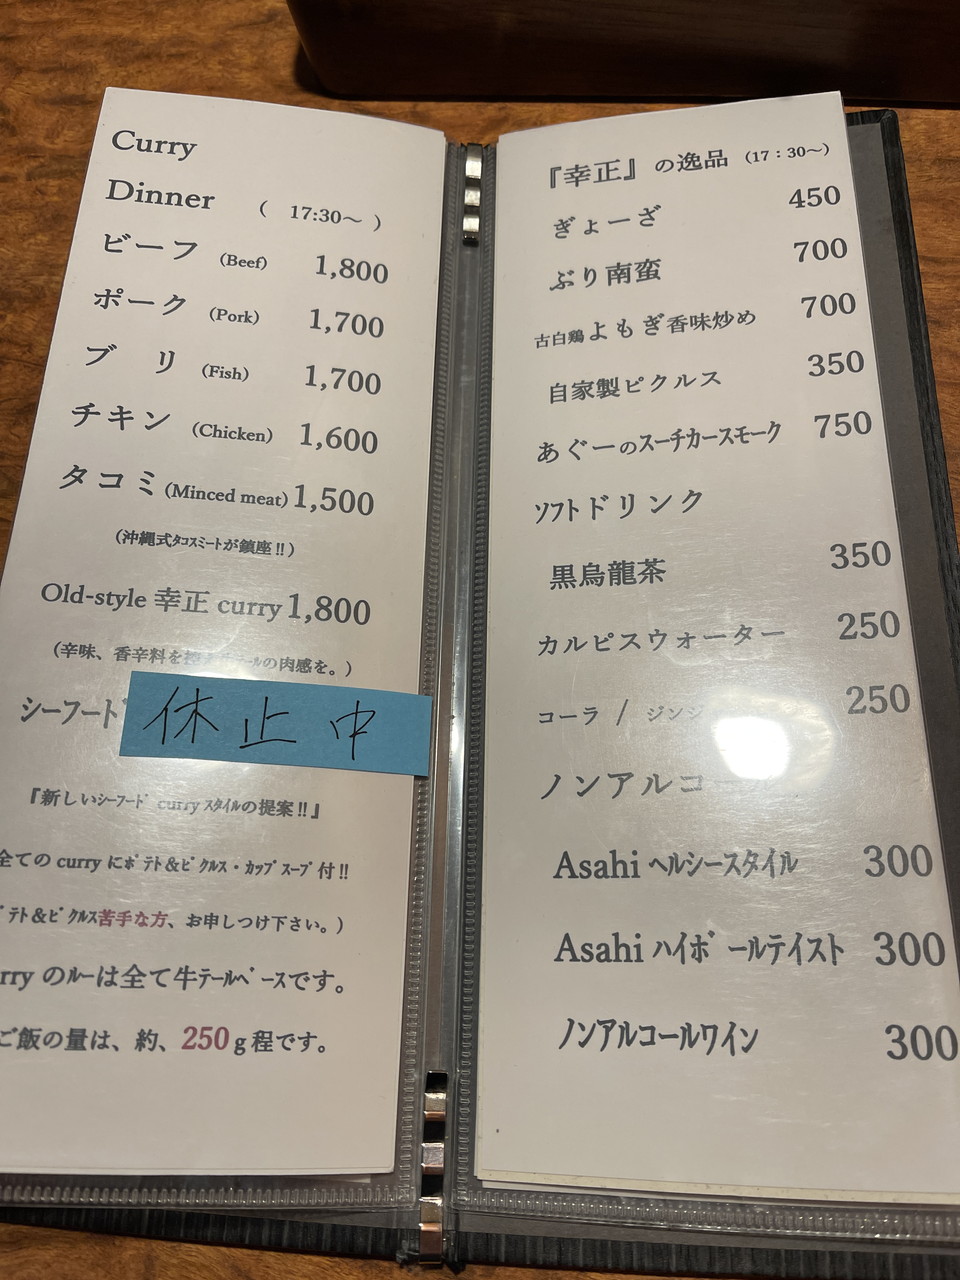 Curry
Dinner ( 17:30～ )
ビーフ (Beef) 1,800
ポーク (Pork) 1,700
ブ リ (Fish) 1,700
チキン (Chicken) 1,600
タコミ (Minced meat) 1,500
(沖縄式ﾀｺｽﾐｰﾄが鎮座!!)
Old-style 幸正 curry 1,800
(辛味、香辛料を控え ﾃｰﾙの肉感を。)
シーフード
休止中
『新しいｼｰﾌｰﾄﾞ curry ｽﾀｲﾙの提案!!』
全ての curry にﾎﾟﾃﾄ＆ﾋﾟｸﾙｽ・ｶｯﾌﾟｽｰﾌﾟ付!!
ﾃﾄ＆ﾋﾟｸﾙｽ苦手な方、お申しつけ下さい。)
rry のﾙｰは全て牛ﾃｰﾙﾍﾞｰｽです。
ご飯の量は、約、250ｇ程です。
『幸正』の逸品 (17：30～)
ぎょーざ 450
ぶり南蛮 700
古白鶏よもぎ香味炒め 700
自家製ピクルス 350
あぐーのスーチカースモーク 750
ソフトドリンク
黒烏龍茶 350
カルピスウォーター 250
コーラ / ジンジ 250
ノンアルコー
Asahi ヘルシースタイル 300
Asahi ハイボールテイスト 300
ノンアルコールワイン 300